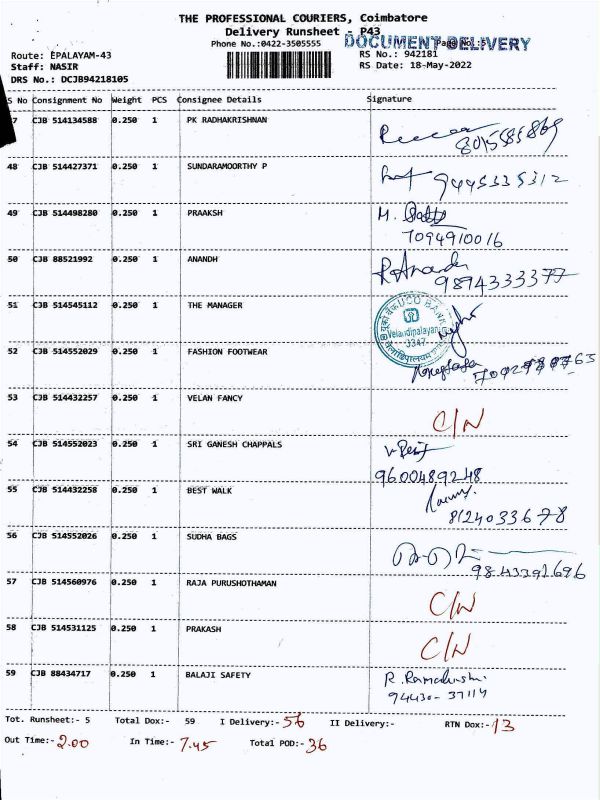 THE PROFESSIONAL COURIERS, Coimbatore
Delivery Runsheet - P43
Phone No.:0422-3505555
DOCUMENT DELIVERY
Page No.:5
Route: EPALAYAM-43
RS No.: 942181
Staff: NASIR
RS Date: 18-May-2022
DRS No.: DCJB94218105
S No Consignment No Weight PCS Consignee Details Signature
7 CJB 514134588 0.250 1 PK RADHAKRISHNAN
48 CJB 514427371 0.250 1 SUNDARAMOORTHY P
9445335312
49 CJB 514498280 0.250 1 PRAAKSH M.
7094910016
50 CJB 88521992 0.250 1 ANANDH R Anandh
9894333377
51 CJB 514545112 0.250 1 THE MANAGER
UCO BANK
Velandipalayam
3347
52 CJB 514552029 0.250 1 FASHION FOOTWEAR
53 CJB 514432257 0.250 1 VELAN FANCY C/N
54 CJB 514552023 0.250 1 SRI GANESH CHAPPALS
9600489248
55 CJB 514432258 0.250 1 BEST WALK
8124033678
56 CJB 514552026 0.250 1 SUDHA BAGS
9843392696
57 CJB 514560976 0.250 1 RAJA PURUSHOTHAMAN C/N
58 CJB 514531125 0.250 1 PRAKASH C/N
59 CJB 88434717 0.250 1 BALAJI SAFETY R. Ramakrishn
94430-37114
Tot. Runsheet:- 5 Total Dox:- 59 I Delivery:- 56 II Delivery:- RTN Dox:- 13
Out Time:- 2.00 In Time:- 7.45 Total POD:- 36